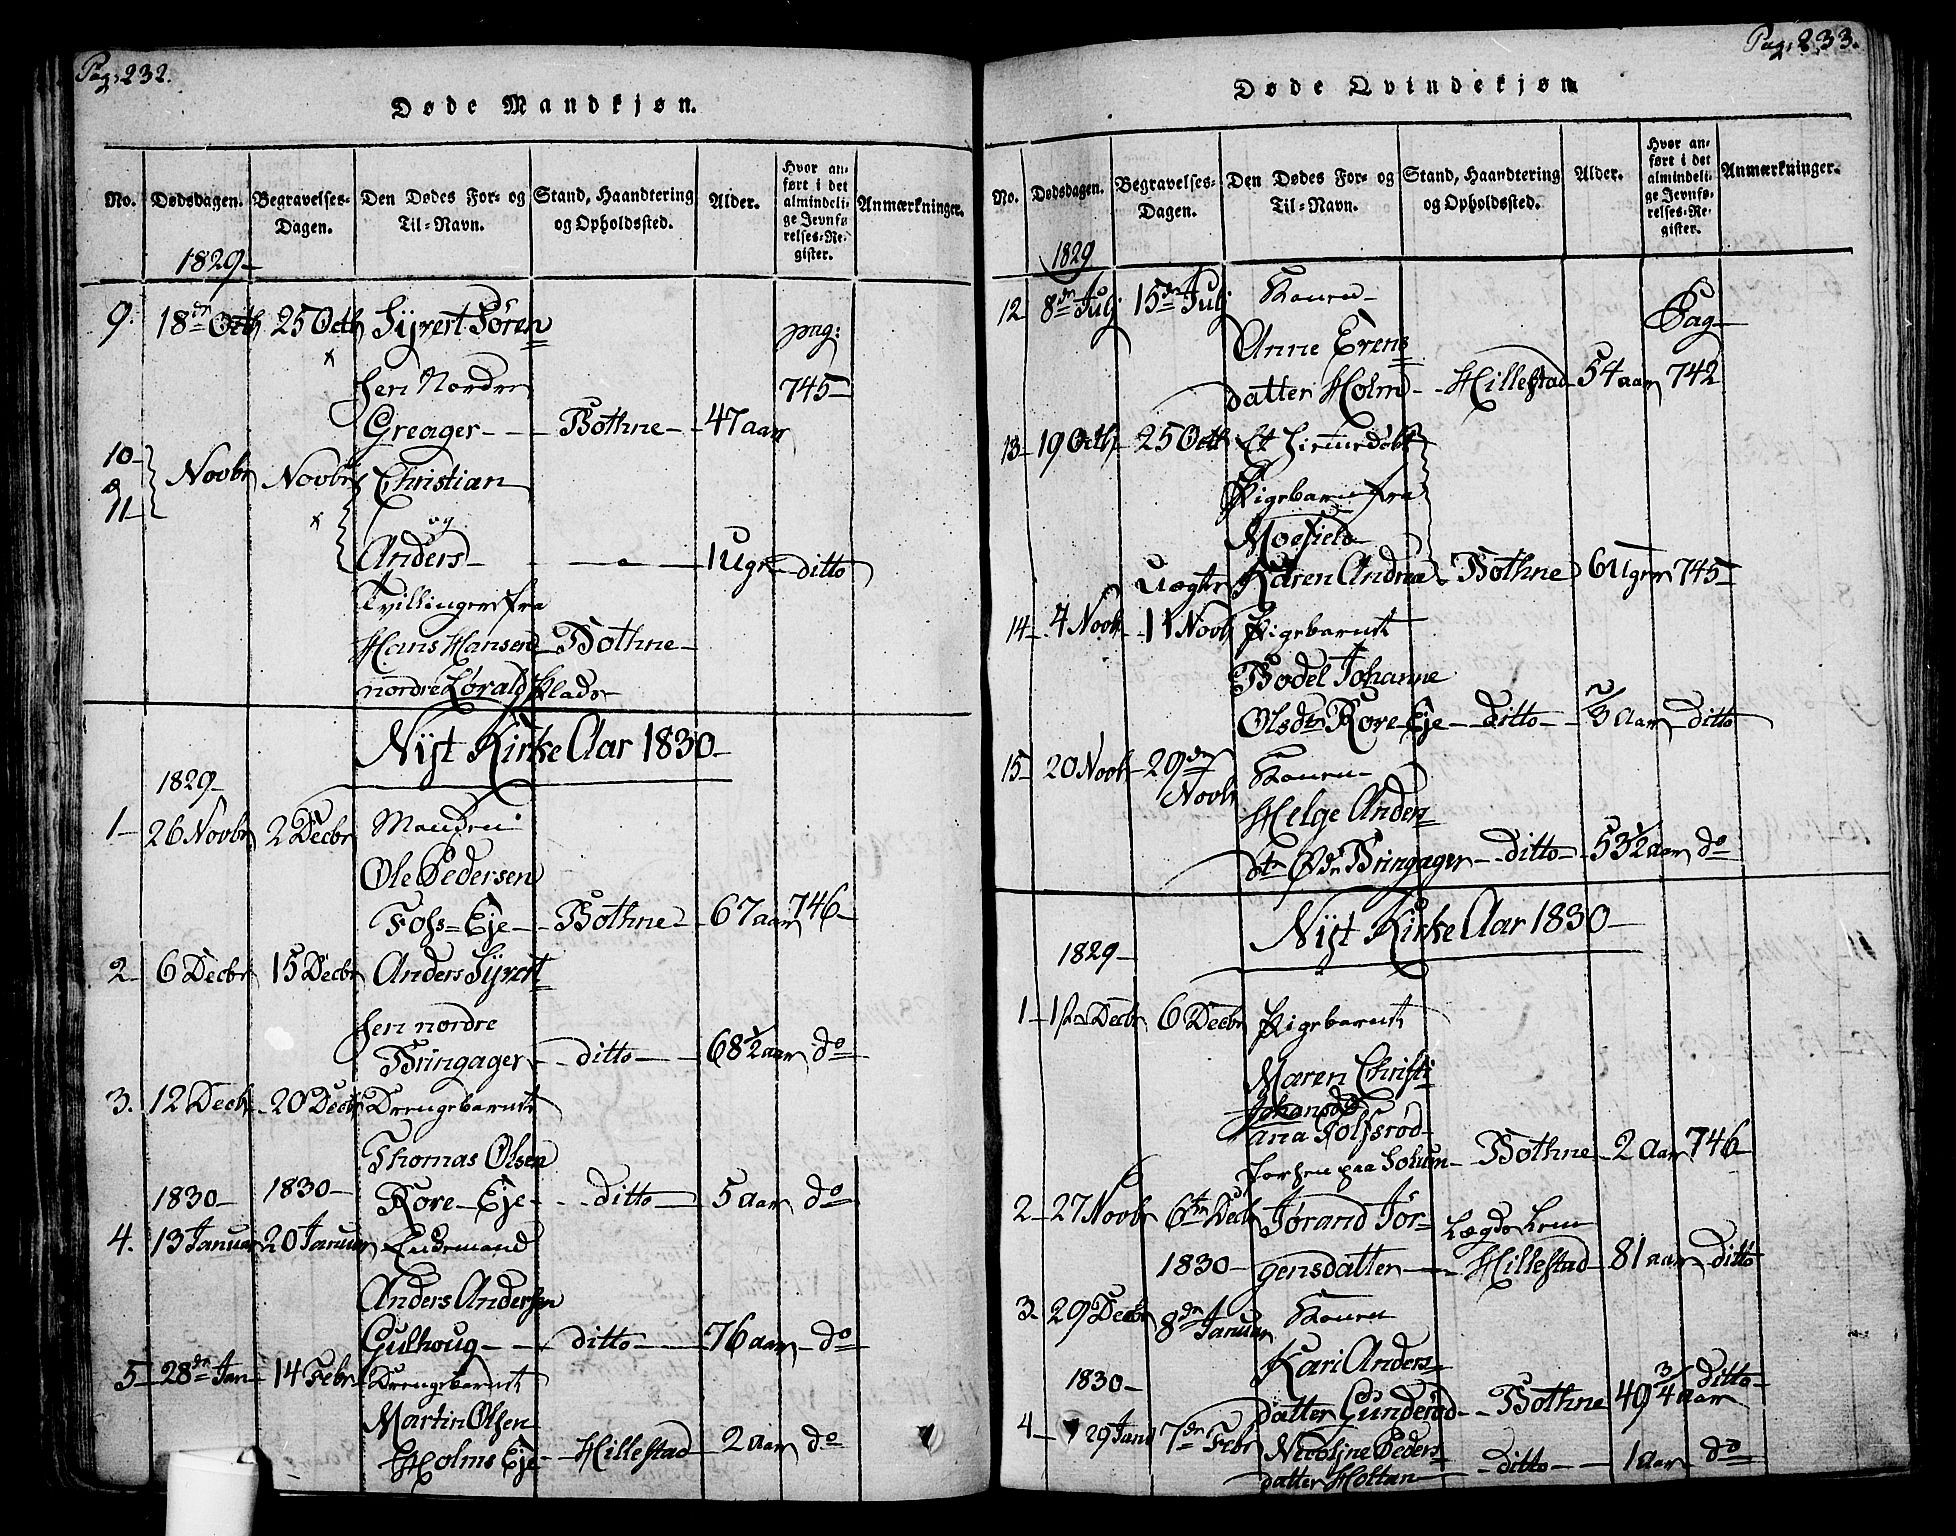 Pag: 232.
Døde Mandkjøn.
No.
Dødsdagen.
Begravelses-
Dagen.
Den Dødes For- og
Til-Navn.
Stand, Haandtering
og Opholdssted.
Alder.
Hvor an-
ført i det
almindeli-
ge Jevnfø-
relses-Re-
gister.
Anmærkninger.
1829-
9. 18de Octb 25 Octb Syvert Sören
sen Nordre pag:
745-
Greager - Bothne - 47 aar
10- & 11- Novbr Novbr Christian
og
Anders - 1 Ugr - ditto
Tvillinger fra
Hans Hansen Bothne -
nordre Løvald Plads
Nyt Kirke Aar 1830-
1829-
1- 26 Novbr 2 Decbr Manden
Ole Pedersen
Foss-Eje - Bothne - 67 aar 746-
2- 6 Decbr 15 Decbr Anders Syvert-
sen nordre
Bringager - ditto - 68½ aar do
3. 12 Decb - 20 Decbr Drengebarnet
Thomas Olsen
1830- 1830- Rore-Eje - ditto - 5 aar do
4. 13 Januar 20 Januar Enkemand
Anders Andersen
Gulhoug - ditto - 76 aar - do
5- 28de Jan - 14 Febr Drengebarnet
Martin Olsen
Holms Eje - Hillestad - 2 aar do
Pag: 233.
Døde Qvindekjøn
No.
Dødsdagen.
Begravelses-
Dagen.
Den Dødes For- og
Til-Navn.
Stand, Haandtering
og Opholdssted.
Alder.
Hvor an-
ført i det
almindeli-
ge Jevnfø-
relses-Re-
gister.
Anmærkninger.
1829
12 8de Julj 15de Julj Konen
Anne Evens Pag-
datter Holm - Hillestad - 54 aar 742
13- 19 Octb 25 Octb Et hiemedøbt
Pigebarn fra
Moefield
Uægte Karen Andrea - Bothne 6 Uger 745-
14- 4 Novb - 11 Novb Pigebarnet
Bodel Johanne
Olsdtr Rore-Eje - ditto - 2/3 Aar - ditto
15- 20 Novb - 29de Novb Konen
Helge Anders
dtr Bringager - ditto - 53½ aar do
Nyt Kirke Aar 1830-
1829-
1- 1ste Decbr 6 Decbr Pigebarnet
Maren Christi
Johansdtr
ana Solfsrød
paa Solum - Bothne - 2 aar 746-
2- 27 Novbr 6te Decb Jørand Jør- Lægds Lem
1830- gensdatter - Hillestad - 81 aar - ditto
3. 29 Decbr 8de Januar Konen
Kari Anders
1830- datter Gunderød - Bothne 49 3/4 aar ditto
4- 29 Janu 7de Febr Nicoline Peders
datter Holtan - ditto - 1 aar - do